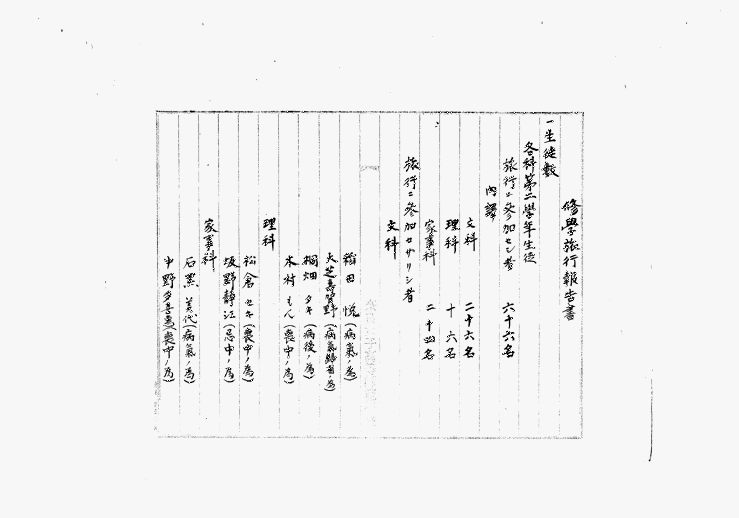 修學旅行報告書
一生徒數
各科第二學年生徒
旅行ニ參加セシ者 六十六名
內譯
文科 二十六名
理科 十六名
家事科 二十四名
旅行ニ參加セザリシ者
文科
稲田悦(病氣ノ為)
大芝壽賀野(病氣歸省ノ為)
桐畑タキ(病後ノ為)
木村もん(喪中ノ為)
理科
松倉セキ(喪中ノ為)
坂野靜江(忌中ノ為)
家事科
石黒美代(病氣ノ為)
中野多喜惠(喪中ノ為)